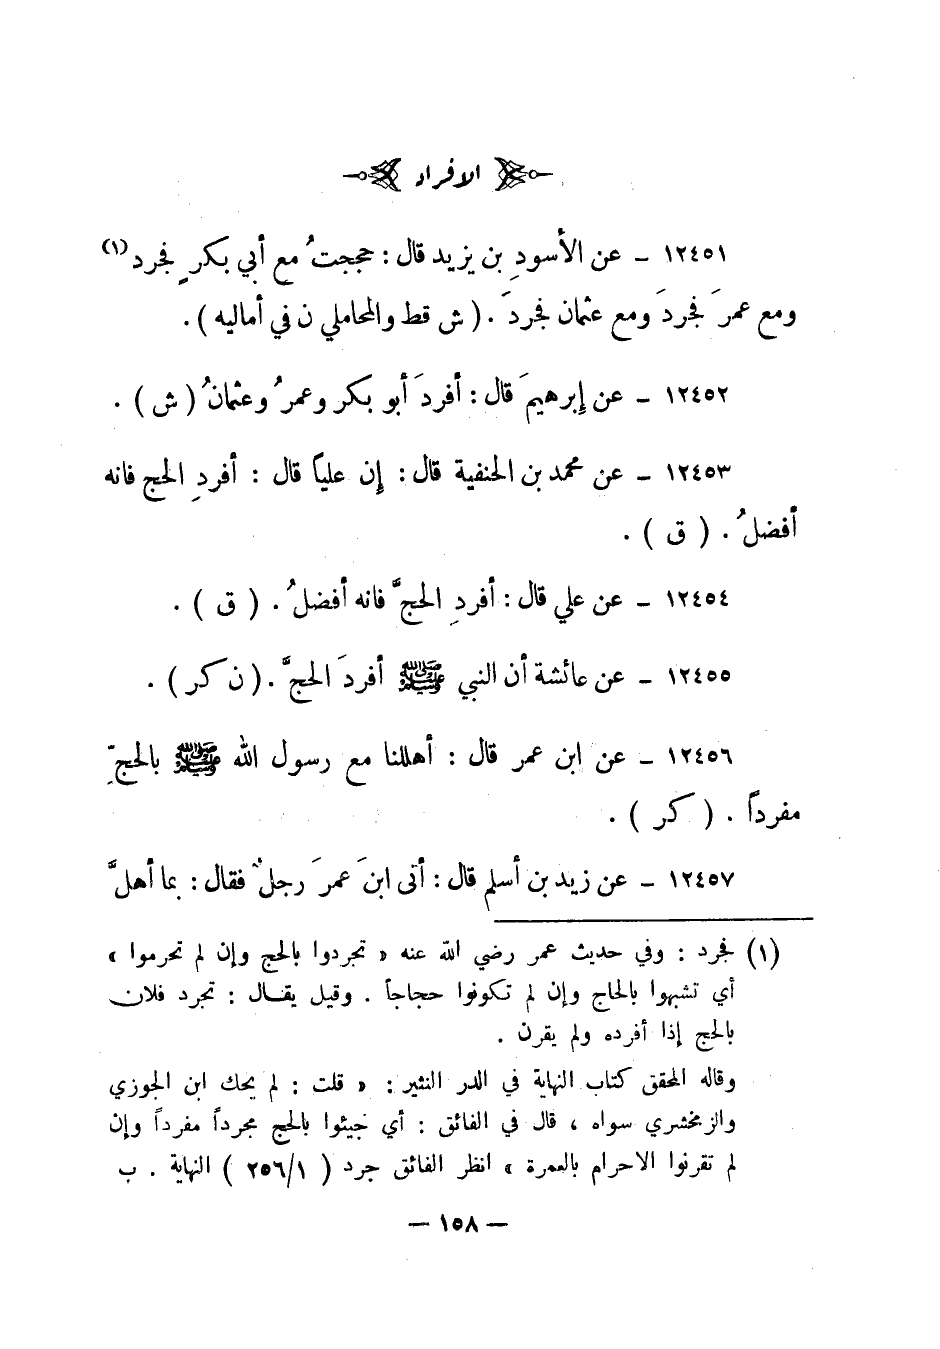 الافراد
١٢٤٥١ - عن الأسودِ بن يزيد قال : حججتُ مع أبي بكرٍ فجرد (١)
ومع عمرَ فجردَ ومع عثمان فجردَ . ( ش قط والمحاملي ن في أماليه ) .
١٢٤٥٢ - عن إبرهيمَ قال : أفردَ أبو بكر وعمرُ وعثمانُ ( ش ) .
١٢٤٥٣ - عن محمد بن الحنفية قال : إن علياً قال : أفردِ الحج فانه
أفضلُ . ( ق ) .
١٢٤٥٤ - عن علي قال : أفردِ الحجَّ فانه أفضلُ . ( ق ) .
١٢٤٥٥ - عن عائشة أن النبي ﷺ أفردَ الحجَّ . ( ن كر ) .
١٢٤٥٦ - عن ابن عمر قال : أهللنا مع رسول الله ﷺ بالحجِّ
مفرداً . ( كر ) .
١٢٤٥٧ - عن زيد بن أسلم قال : أتى ابنَ عمرَ رجلٌ فقال : بما أهلَّ
(١) فجرد : وفي حديث عمر رضي الله عنه « تجردوا بالحج وإن لم تحرموا »
أي تشبهوا بالحاج وإن لم تكونوا حجاجاً . وقيل يقال : تجرد فلان
بالحج إذا أفرده ولم يقرن .
وقاله المحقق كتاب النهاية في الدر النثير : « قلت : لم يحك ابن الجوزي
والزمخشري سواه ، قال في الفائق : أي جيئوا بالحج مجرداً مفرداً وإن
لم تقرنوا الاحرام بالعمرة » انظر الفائق جرد ( ٢٥٦/١ ) النهاية . ب
— ١٥٨ —